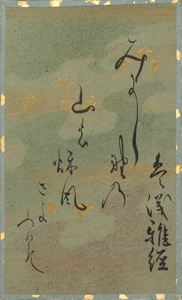 参議雅経
みよし野乃
山の秋風
さよ
ふけて